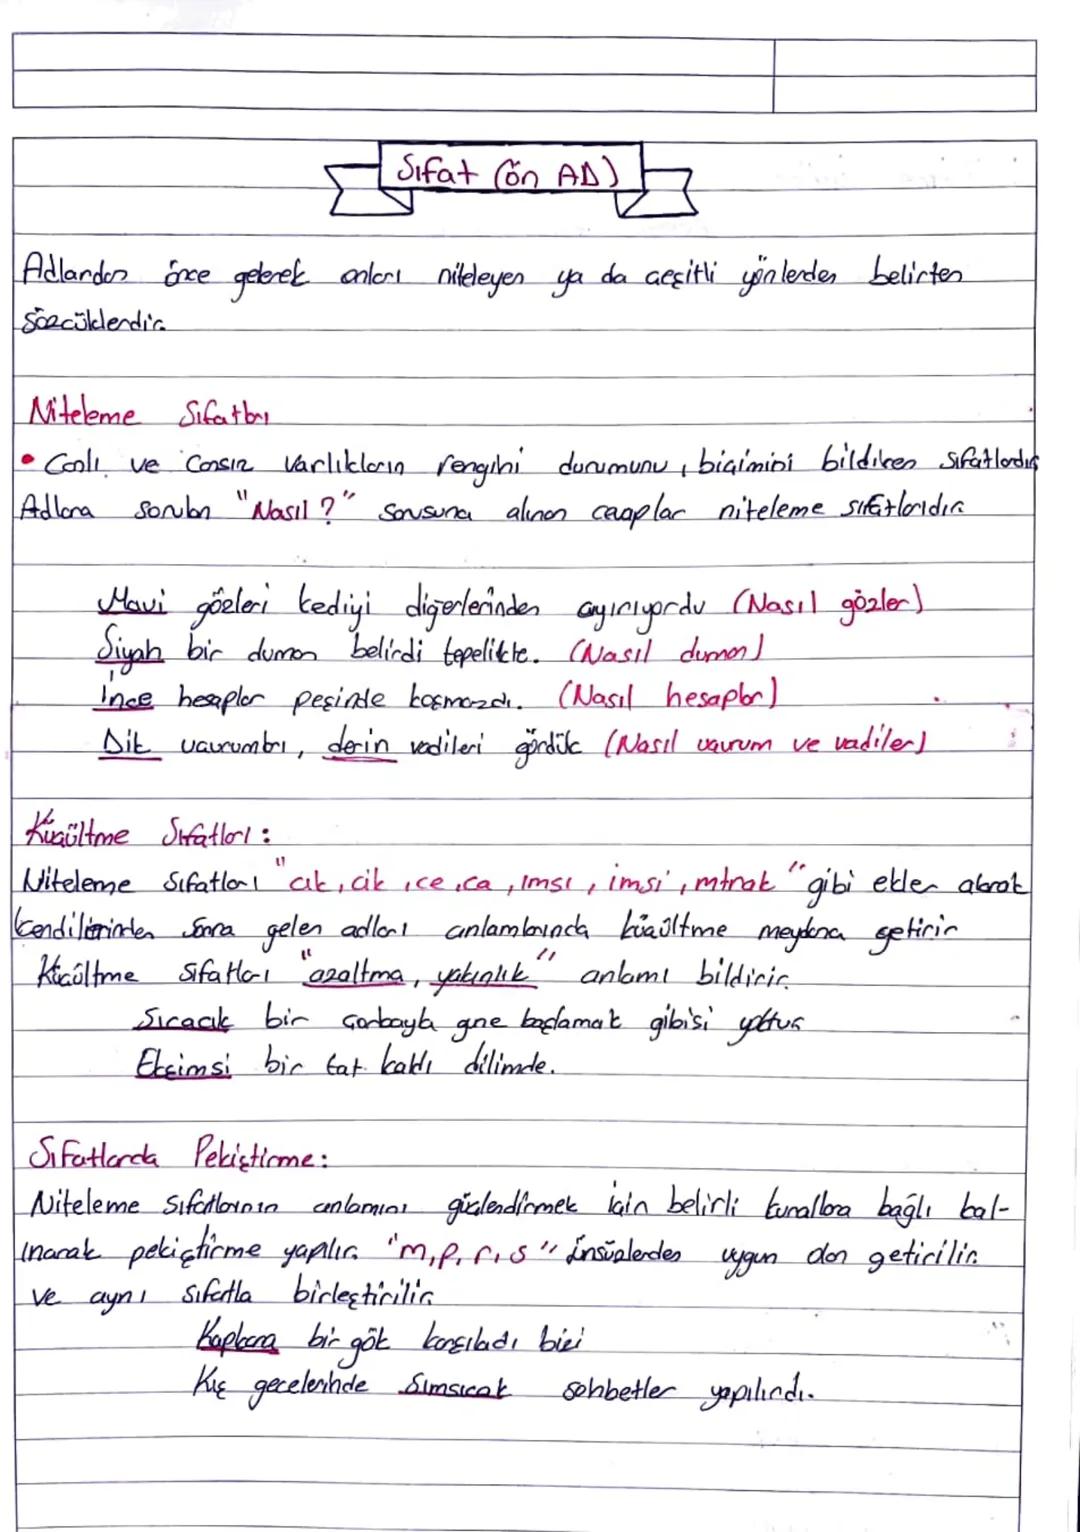 Sıfat (ön AD)
Adlardan önce gelerek onları niteleyen ya da çeşitli yönlerden belirten
sözcüklerdir.
Niteleme Sıfatları
• Canlı ve Cansız varlıkların rengini durumunu, biçimini bildiren sıfatlardır
Adlara sorulan "Nasıl ?" sorusuna alınan cevaplar niteleme sıfatlarıdır.
Mavi gözleri kediyi diğerlerinden ayırıyordu (Nasıl gözler)
Siyah bir duman belirdi tepelikte. (Nasıl duman)
İnce hesaplar peşinde koşmazdı. (Nasıl hesaplar)
Dik uçurumları, derin vadileri gördük (Nasıl uçurum ve vadiler)
Küçültme Sıfatları :
Niteleme Sıfatları "cık, cik, ce, ca, ımsı, imsi, mtırak" gibi ekler alarak
kendilerinden sonra gelen adları anlamlarında küçültme meydana getirir
Küçültme sıfatları "azaltma, yakınlık" anlamı bildirir.
Sıcacık bir çorbayla güne başlamak gibisi yoktur
Ekşimsi bir tat kaldı dilimde.
Sıfatlarda Pekiştirme:
Niteleme sıfatlarının anlamını güçlendirmek için belirli kurallara bağlı kal-
ınarak pekiştirme yapılır. "m, p, r, s" ünsüzlerden uygun olan getirilir.
ve aynı sıfatla birleştirilir.
Kapkara bir gök karşıladı bizi
Kış gecelerinde Sımsıcak sohbetler yapılırdı.